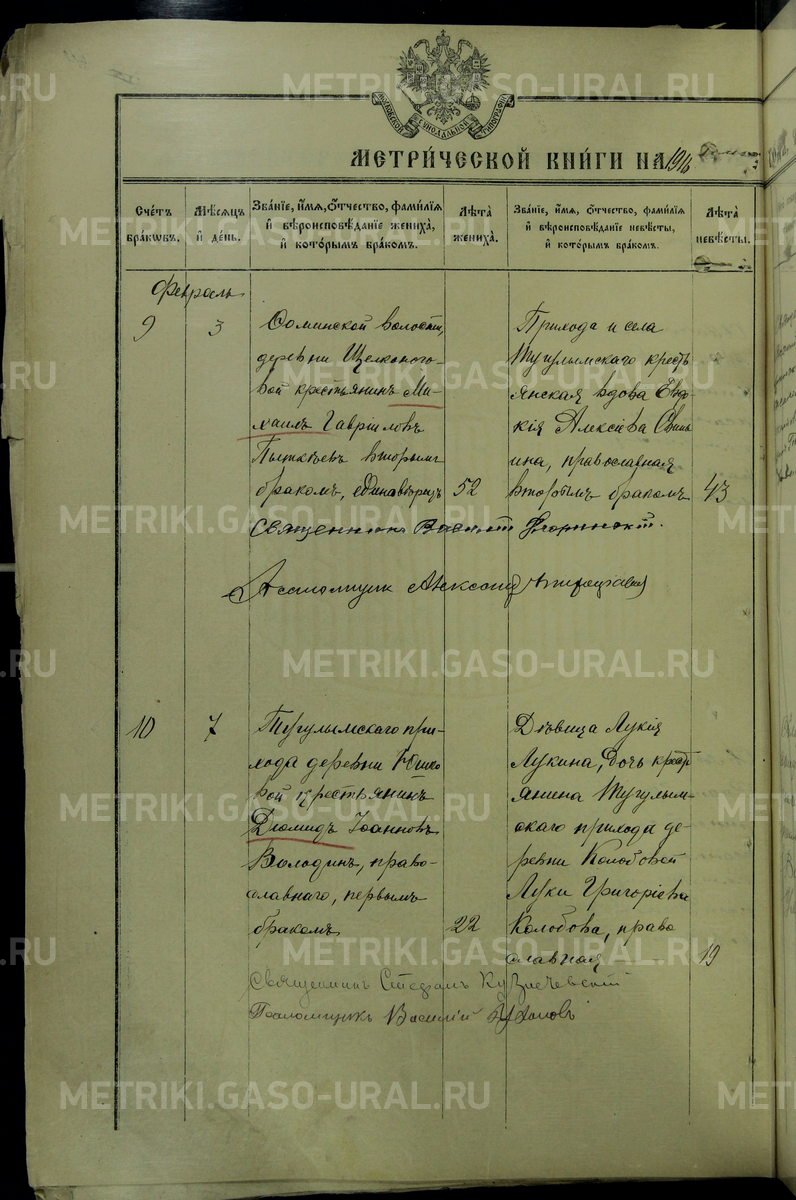 МОСКОВСКОЙ СѴНОДАЛЬНОЙ ТИПОГРАФІИ
МЕТРИ́ЧЕСКОЙ КНИ́ГИ НА 1916
Сче́тъ бра́кѡвъ.
Мѣ́сяцъ и҆ де́нь.
Зва́нїе, и҆́мѧ, ѻ҆́тчество, фами́лїѧ и҆ вѣроисповѣ́данїе жениха̀, и҆ кото́рымъ бра́комъ.
Лѣ́та жениха̀.
Зва́нїе, и҆́мѧ, ѻ҆́тчество, фами́лїѧ и҆ вѣроисповѣ́данїе невѣ́сты, и҆ кото́рымъ бра́комъ.
Лѣ́та невѣ́сты.
Февраль
9
3
Фоминской волости,
деревни Щелконого-
вой крестьянинъ Ми-
хаилъ Гавріиловъ
вторымъ
бракомъ, единовѣрецъ
52
Прихода и села
Тугулымскаго кресть
янская вдова Евдо
кія Алексіева Свинь
ина, православная
вторымъ бракомъ
43
Священникъ
Псаломщикъ Александр
10
7
Тугулымскаго при-
хода деревни
вой крестьянинъ
Діомидъ Іоанновъ
Володинъ, право-
славнаго, первымъ
бракомъ
22
Дѣвица Лукія
Лукина, дочь крест
янина Тугулым-
скаго прихода де-
ревни Колобовой
Луки Григоріева
Колобова, право
славная
19
Священникъ Стефанъ Кузнечевскій
Псаломщикъ Василій
METRIKI.GASO-URAL.RU